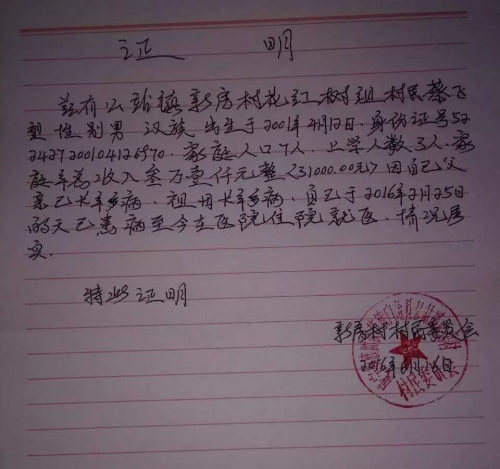 证 明
兹有公站镇新房村花红树组村民蔡飞
型性别男 汉族 出生于2001年4月12日.身份证号52
2427200104126970.家庭人口7人.上学人数3人.家
庭年总收入叁万壹仟元整(31000.00元)因自己父
亲已长年多病.祖母长年多病,自己于2016年2月25日
的天已患病至今在医院住院就医.情况属
实.
特此证明
新房村村民委员会
2016年6月16日
村民委员会